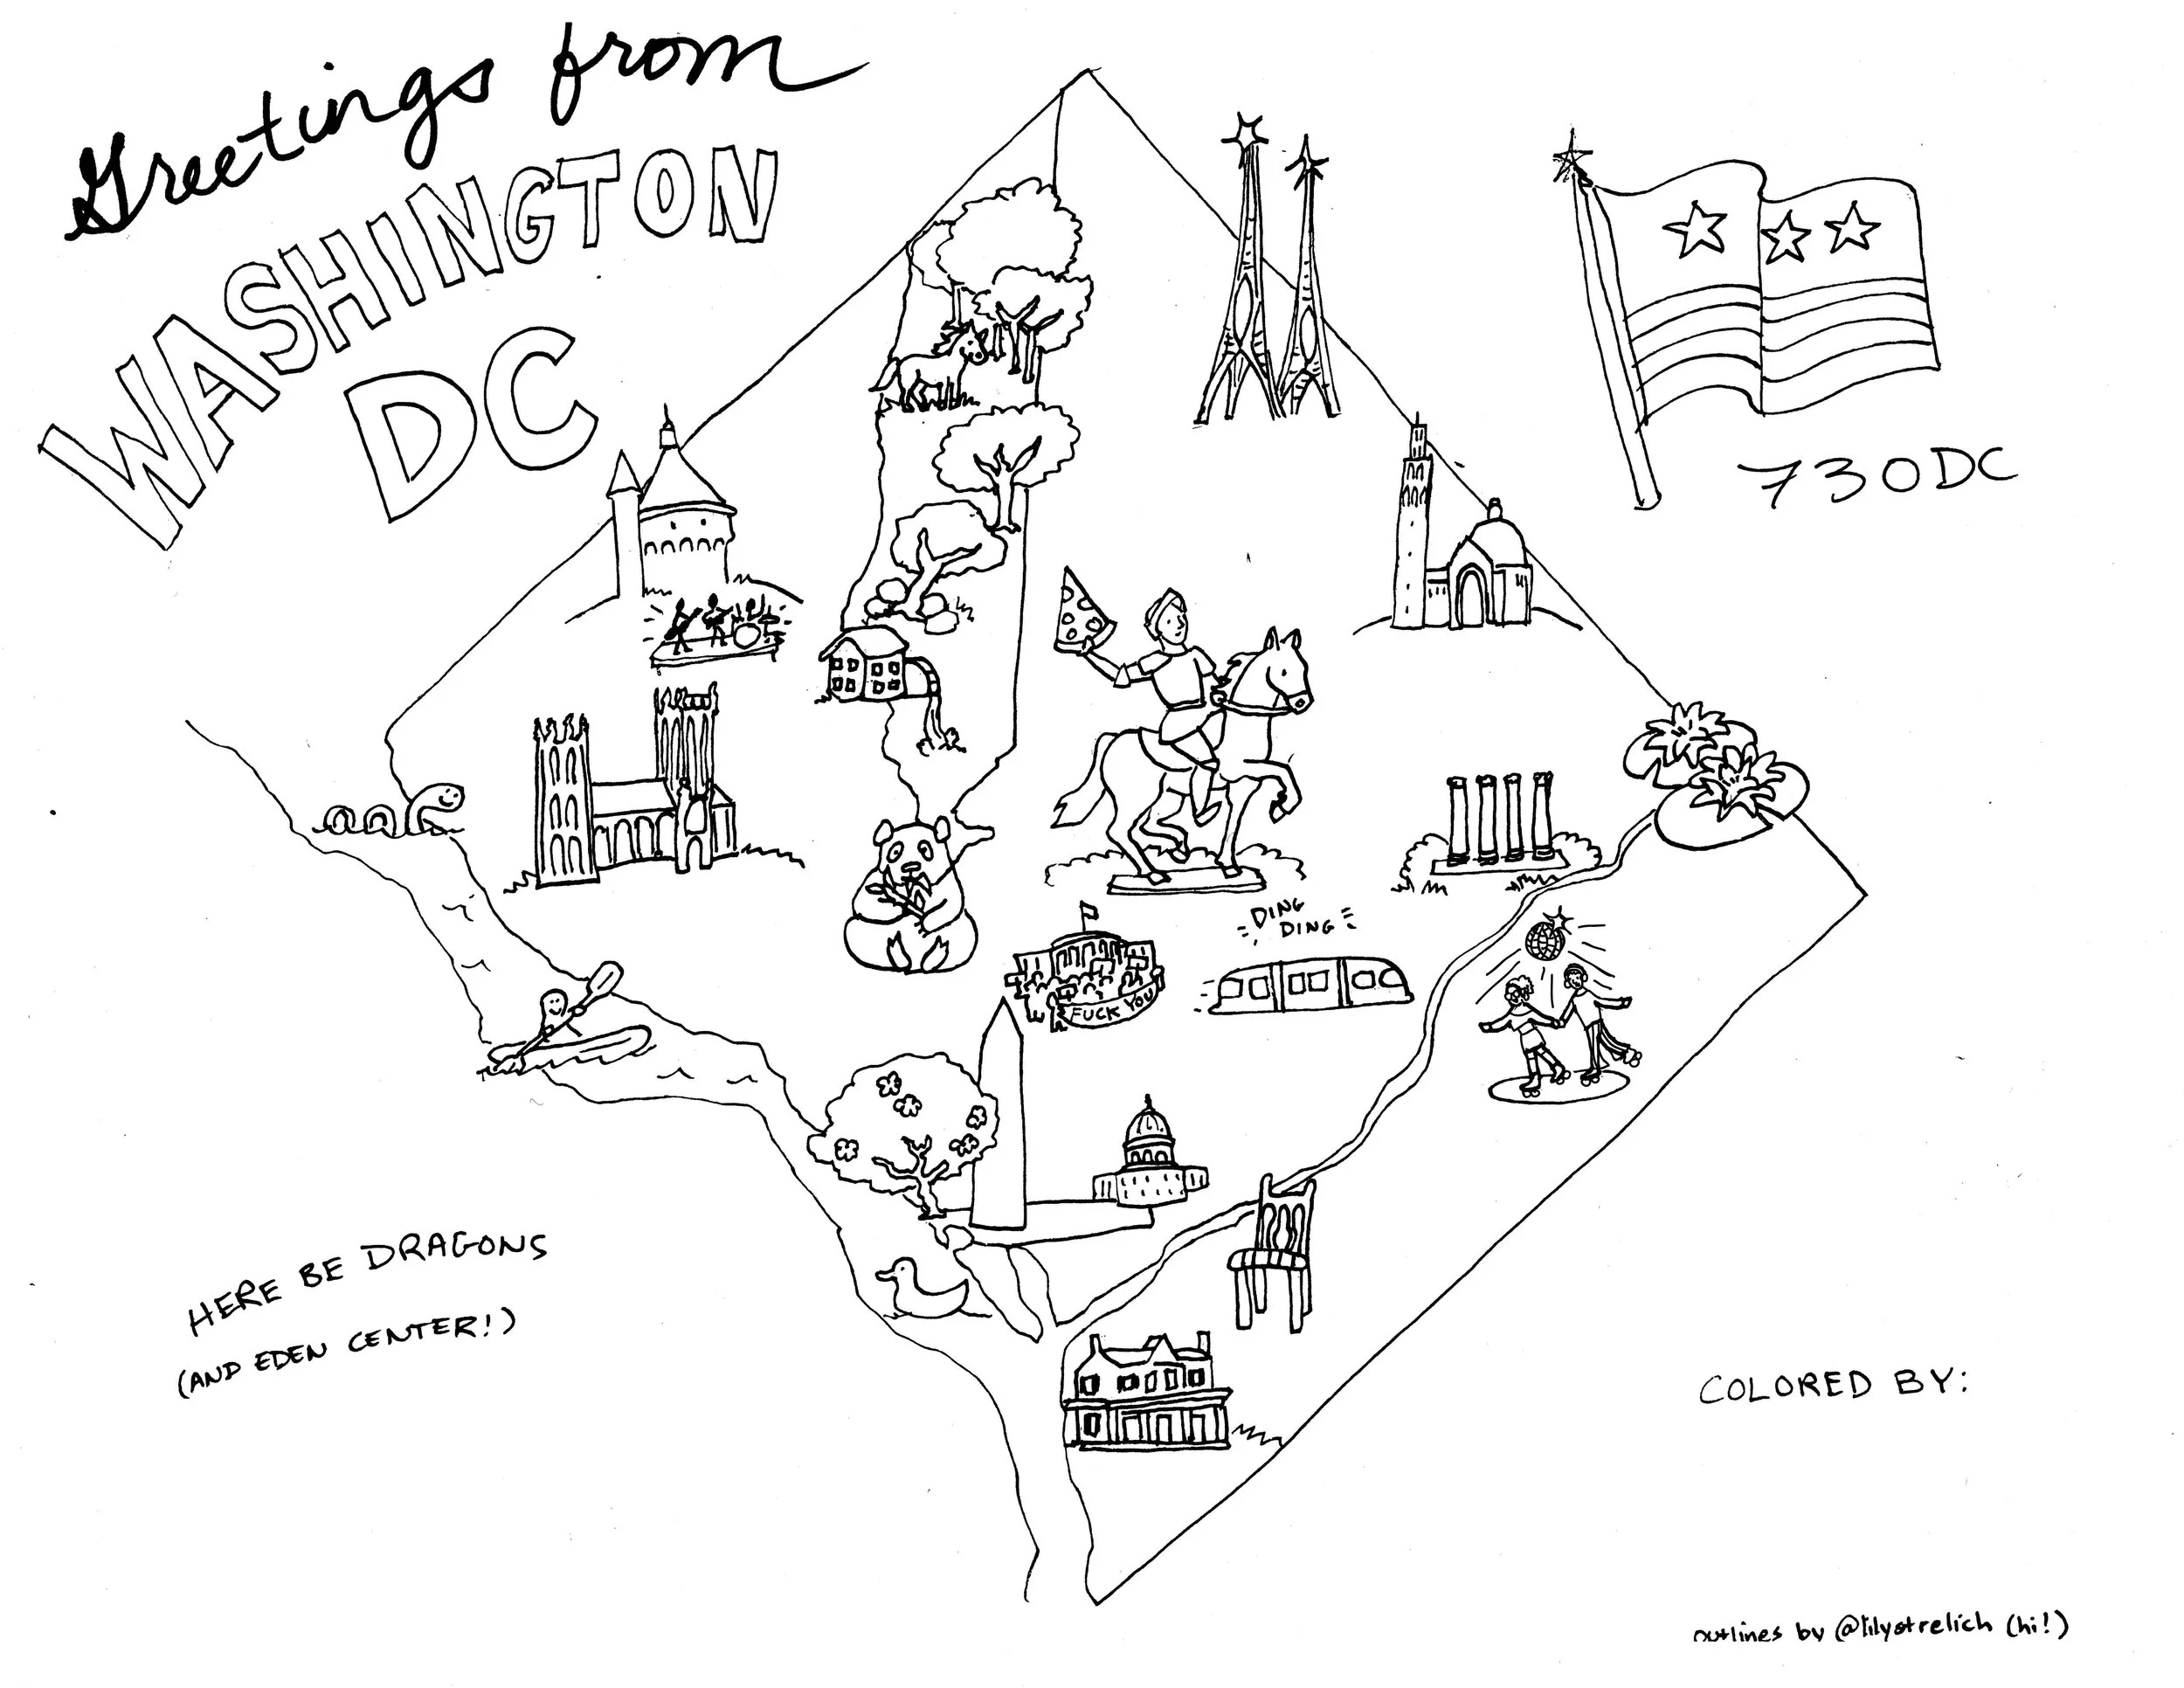 Greetings from
WASHINGTON
DC
730DC
DING
DING
FUCK YOU
HERE BE DRAGONS
(AND EDEN CENTER!)
COLORED BY:
outlines by @lilystrelich (hi!)